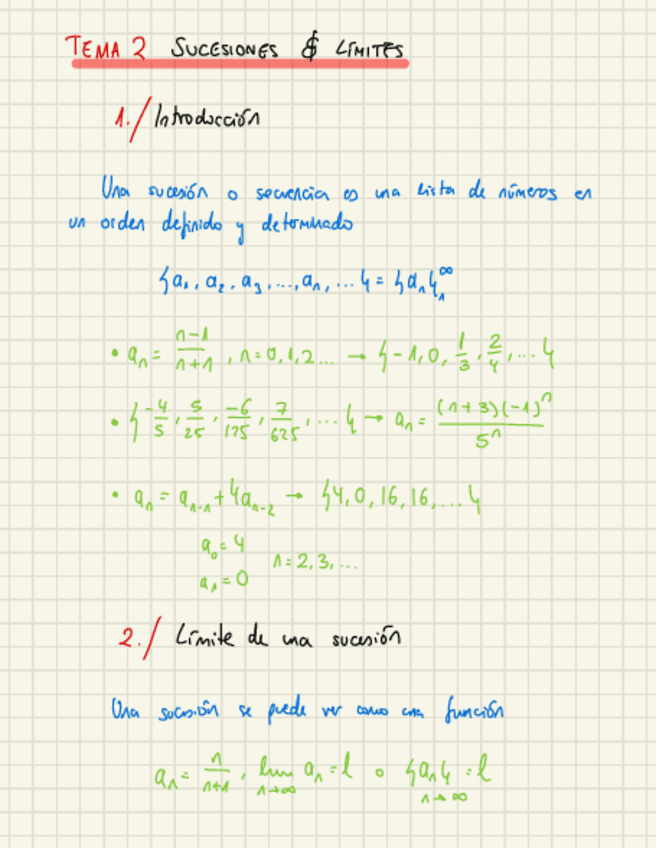 TEMA 2 SUCESIONES & LÍMITES
1./ Introducción
Una sucesión o secuencia es una lista de números en
un orden definido y determinado
{a₁, a₂, a₃, ..., aₙ, ...} = {aₙ}₁^∞
• aₙ = (n-1)/(n+1), n=0,1,2... → {-1, 0, 1/3, 2/4, ...}
• {-4/5, 5/25, -6/125, 7/625, ...} → aₙ = (n+3)(-1)ⁿ/5ⁿ
• aₙ = aₙ₋₁ + 4aₙ₋₂ → {4, 0, 16, 16, ...}
a₀ = 4
n = 2, 3, ...
a₁ = 0
2./ Límite de una sucesión
Una sucesión se puede ver como una función
aₙ = n/(n+1), lim n→∞ aₙ = l o {aₙ} n→∞ = l